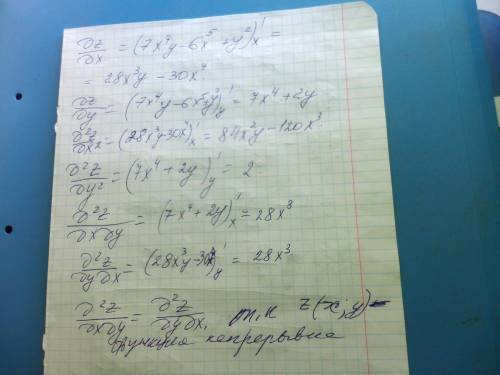 ∂z/∂x = (7x⁴y - 6x⁵ + y²)'ₓ =
= 28x³y - 30x⁴
∂z/∂y = (7x⁴y - 6x⁵ + y²)'ᵧ = 7x⁴ + 2y
∂²z/∂x² = (28x³y - 30x⁴)'ₓ = 84x²y - 120x³
∂²z/∂y² = (7x⁴ + 2y)'ᵧ = 2
∂²z/∂x∂y = (7x⁴ + 2y)'ₓ = 28x³
∂²z/∂y∂x = (28x³y - 30x⁴)'ᵧ = 28x³
∂²z/∂x∂y = ∂²z/∂y∂x, т.к z(x;y) -
функция непрерывна